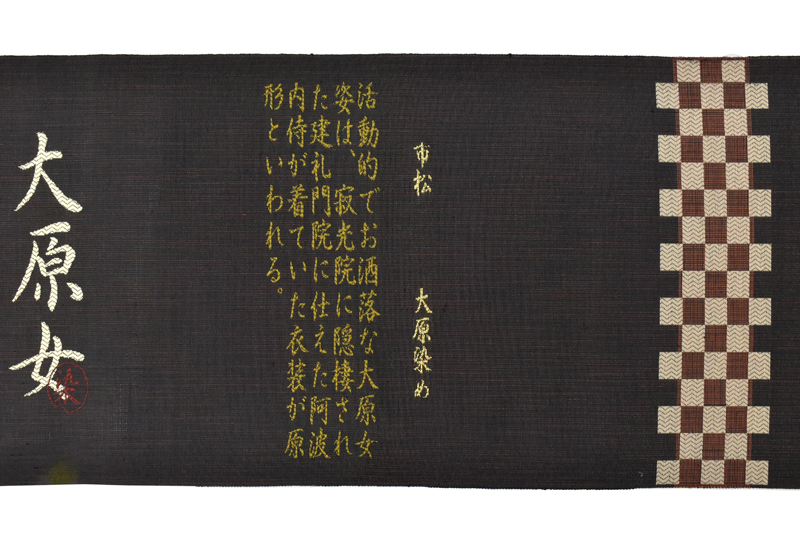 市松 大原染め
活動的でお洒落な大原女
姿は、寂光院に隠棲され
た建礼門院に仕えた阿波
内侍が着ていた衣装が原
形といわれる。
大原女